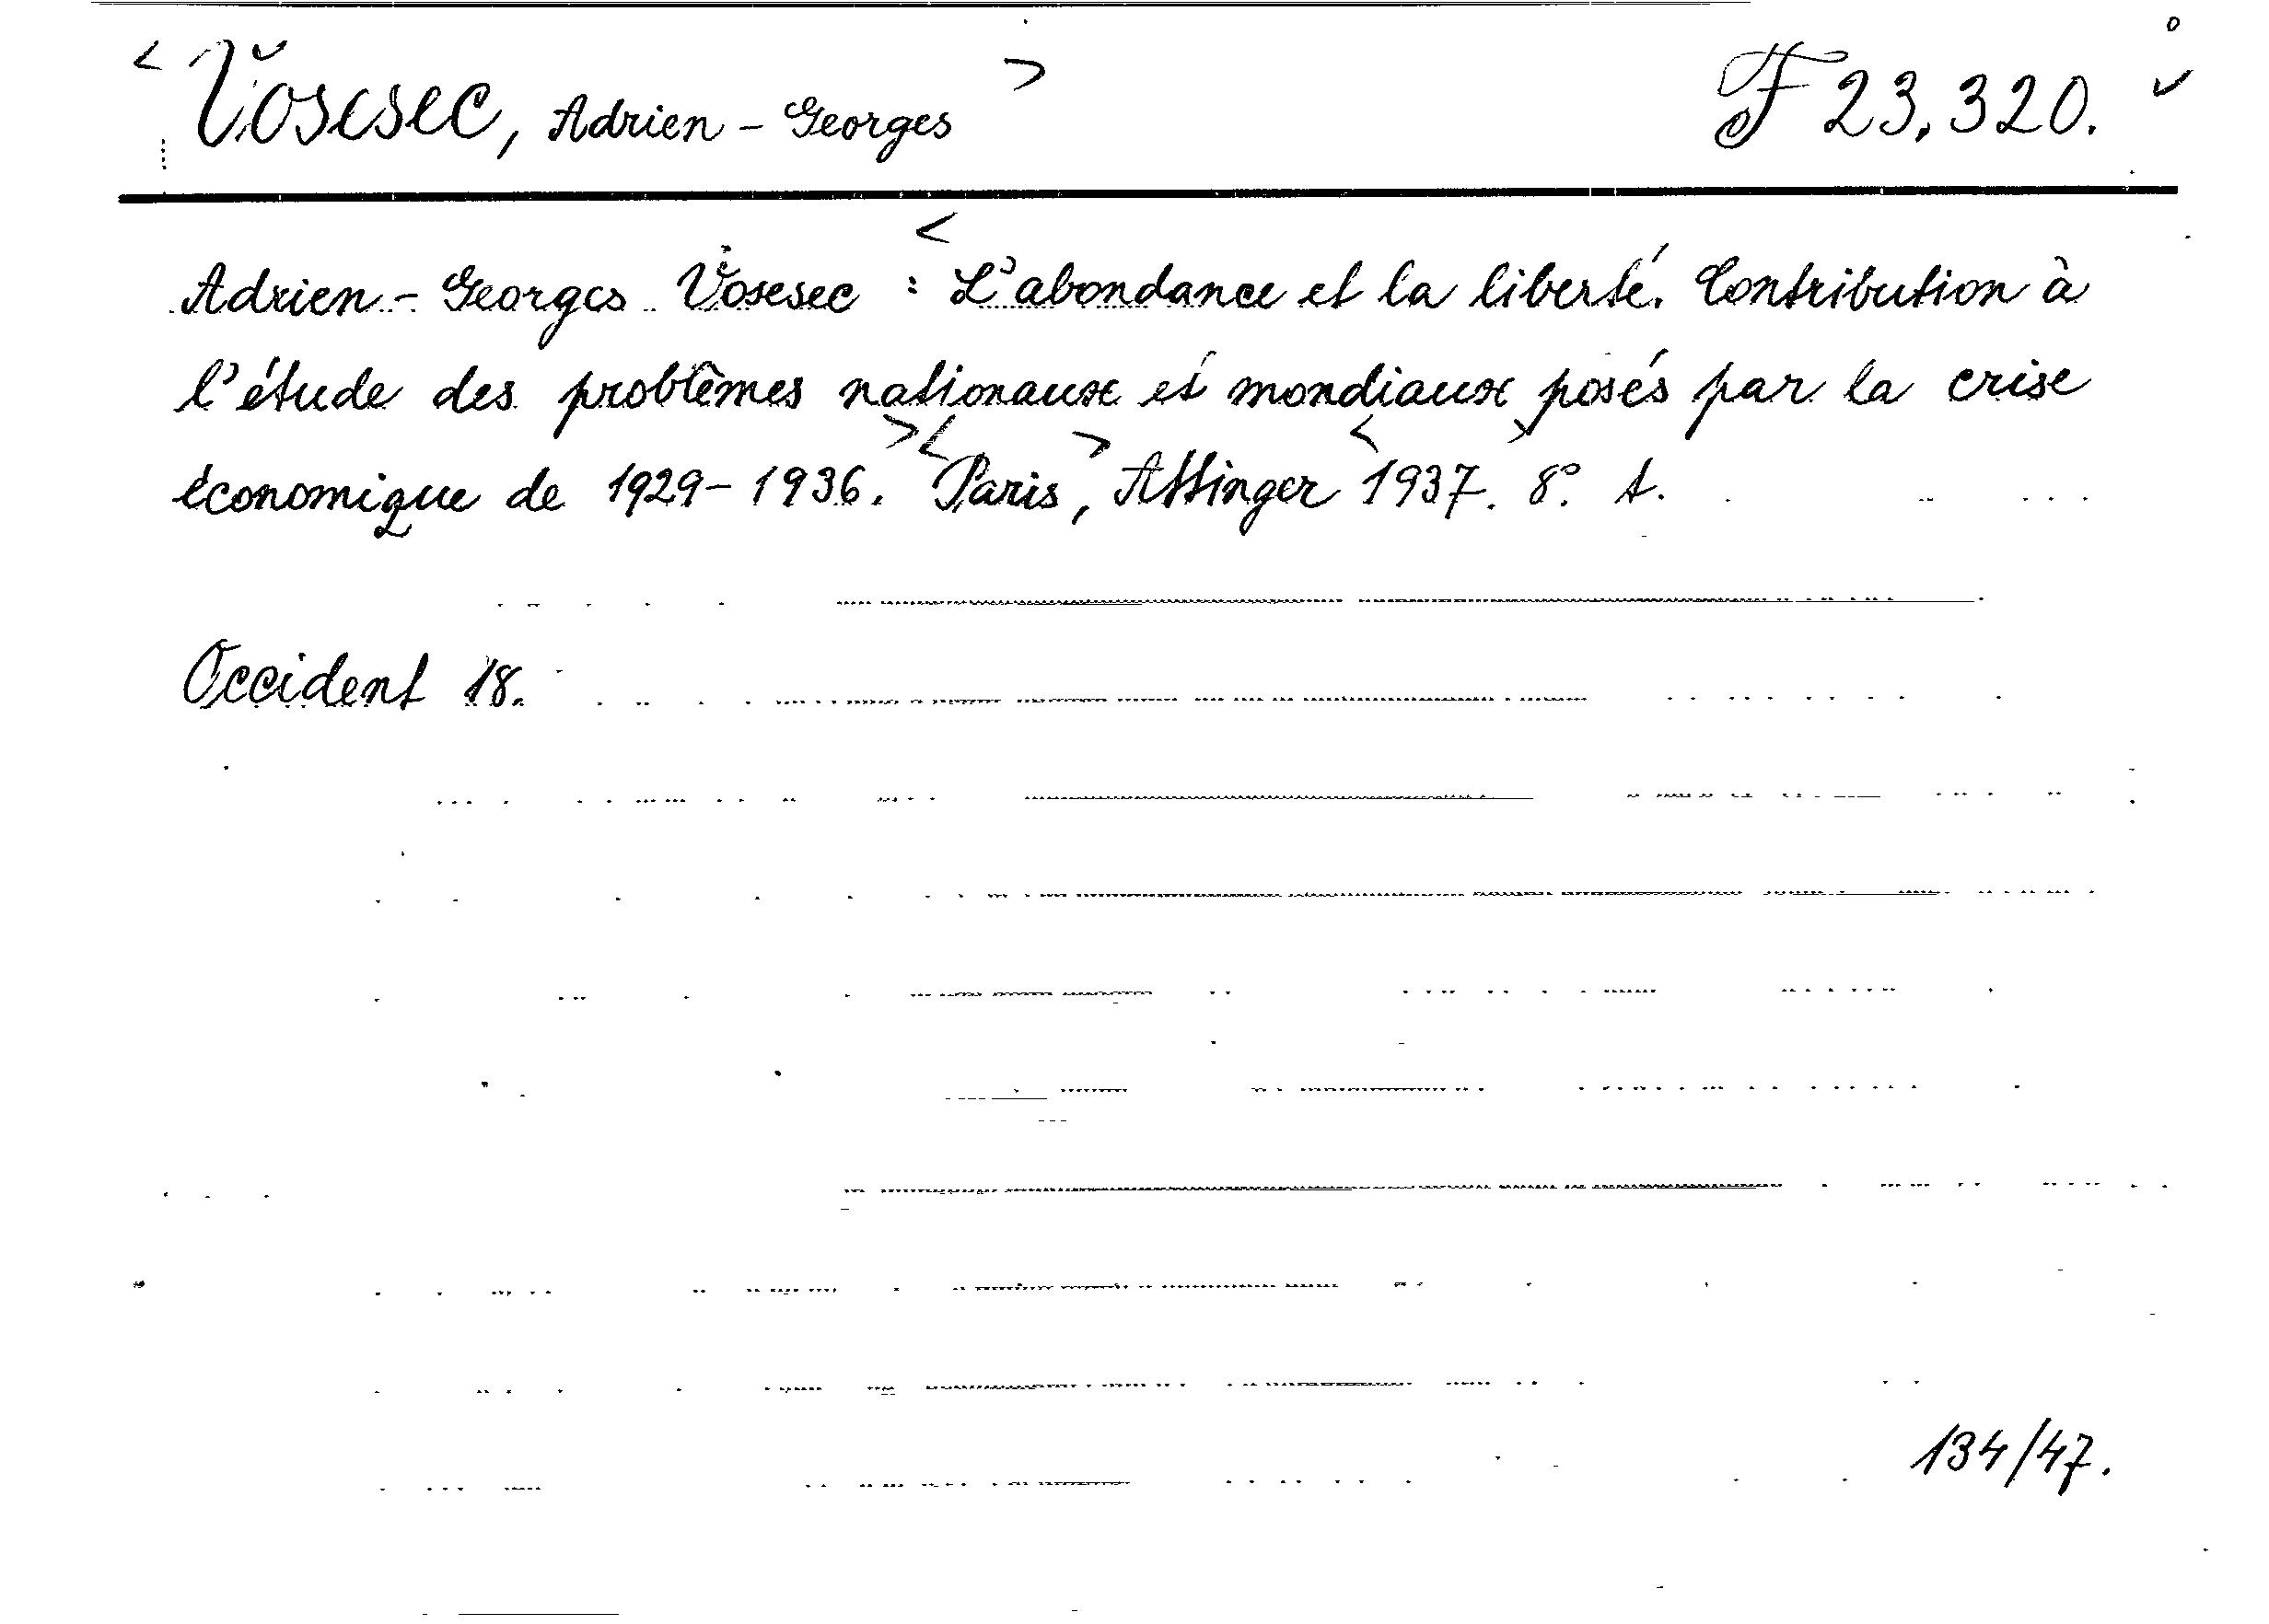 < Vosesec, Adrien - Georges > F 23.320. v
Adrien - Georges Vosesec : < L'abondance et la liberté. Contribution à
l'étude des problèmes nationaux et mondiaux posés par la crise
économique de 1929-1936. > < Paris, > Attinger < 1937. > 8° A.
Occident 18.
134/47.